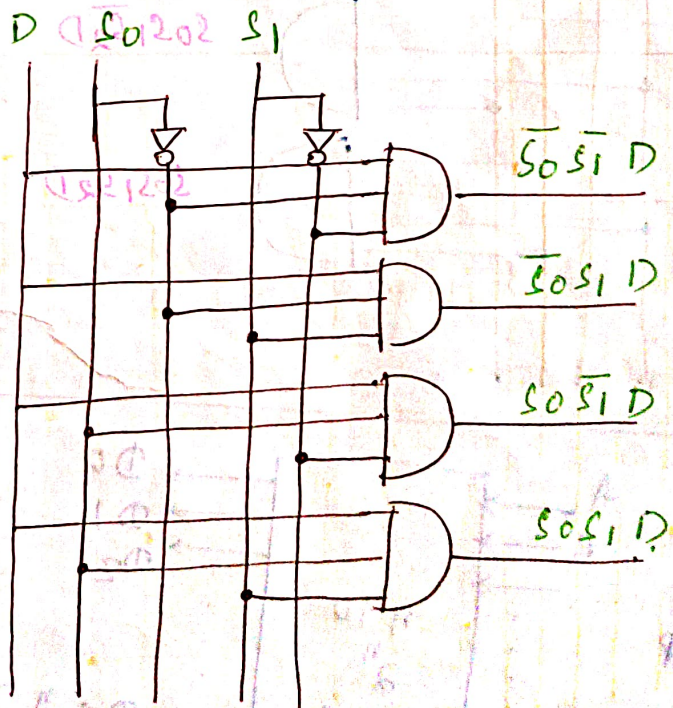 D S0 S1
S̅0̅ S̅1̅ D
S̅0̅ S1 D
S0 S̅1̅ D
S0 S1 D